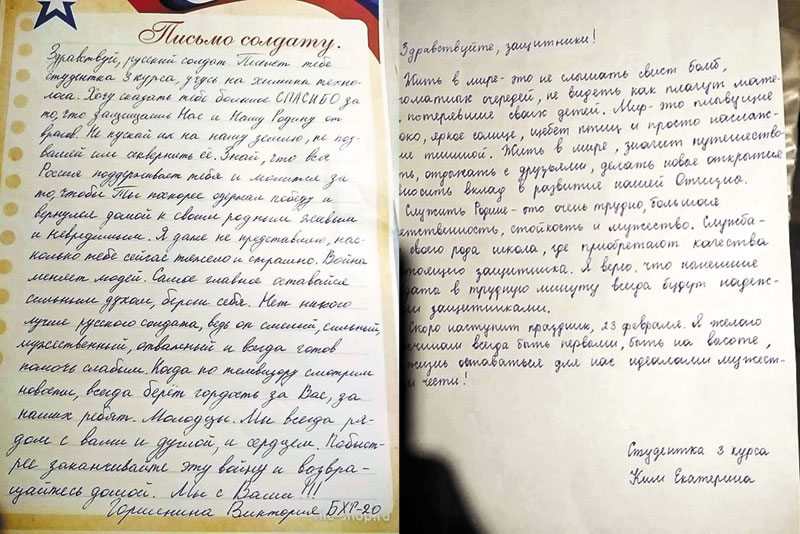 Письмо солдату.
Здравствуй, русский солдат. Пишет тебе
студентка 3 курса, учусь на химика техно-
лога. Хочу сказать тебе большое СПАСИБО за
то, что защищаешь Нас и Нашу Родину от
врагов. Не пускай их на нашу землю, не поз-
валяй им осквернить её. Знай, что вся
Россия поддерживает тебя и молится за
то, чтобы Ты поскорее одержал победу и
вернулся домой к своим родным живым
и невредимым. Я даже не представляю, нас-
колько тебе сейчас тяжело и страшно. Война
меняет людей. Самое главное оставайся
сильным духом, береги себя. Нет никого
лучше русского солдата, ведь он смелый, сильный,
мужественный, отважный и всегда готов
помочь слабым. Когда по телевизору смотрим
новости, всегда берёт гордость за Вас, за
наших ребят. Молодцы. Мы всегда ря-
дом с вами и душой, и сердцем. Побыст-
рее заканчивайте эту войну и возвра-
щайтесь домой. Мы с Вами!!!
Виктория БХТ-20
Здравствуйте, защитники!
Жить в мире - это не слышать свист бомб,
оматных очередей, не видеть как плачут мате-
, потерявшие своих детей. Мир - это плывущие
око, яркое солнце, щебет птиц и просто наслаж-
ие тишиной. Жить в мире, значит путешество-
ть, отдыхать с друзьями, делать новое открытия
вносить вклад в развитие нашей Отчизны.
Служить Родине - это очень трудно, большая
етственность, стойкость и мужество. Служба -
своего рода школа, где приобретают качества
тоящего защитника. Я верю, что нынешние
ата в трудную минуту всегда будут надеж-
ми защитниками.
Скоро наступит праздник, 23 февраля. Я желаю
чинам всегда быть первыми, быть на высоте,
жизнь оставаться для нас идеалами мужест-
и чести!
Студентка 3 курса
Ким Екатерина